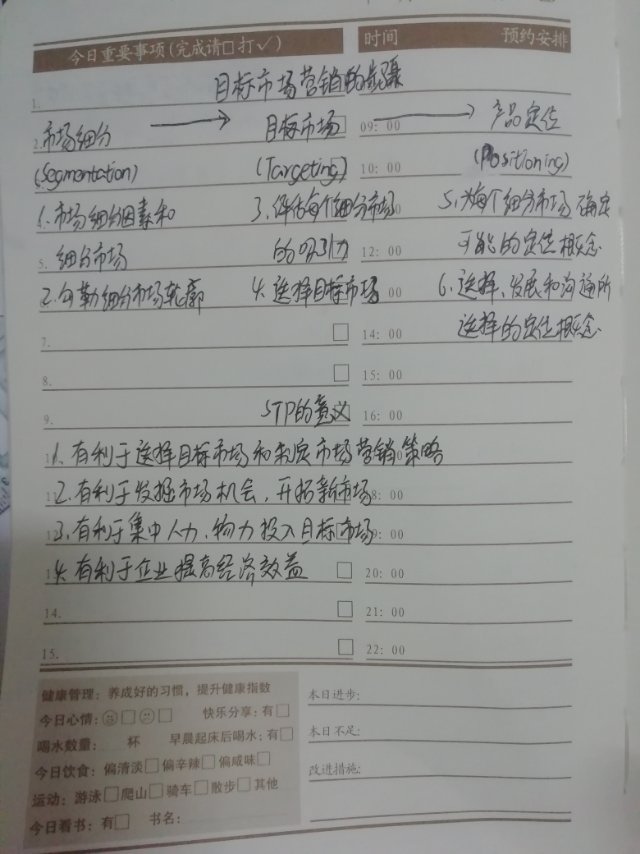 今日重要事项(完成请□打✓) 时间 预约安排
1. 目标市场营销的步骤
2. 市场细分 → 目标市场 09:00 → 产品定位
(Segmentation) (Targeting) 10:00 (Positioning)
1.市场细分因素和 3.评估每个细分市场 5.为每个细分市场确定
5. 细分市场 的吸引力 12:00 可能的定位概念
2.勾勒细分市场轮廓 4.选择目标市场 00 6.选择、发展和沟通所
7. □ 14:00 选择的定位概念.
8. □ 15:00
9. STP的意义 16:00
1.有利于选择目标市场和制定市场营销策略
2.有利于发掘市场机会,开拓新市场 8:00
3.有利于集中人力、物力投入目标市场 9:00
4.有利于企业提高经济效益 □ 20:00
14. □ 21:00
15. □ 22:00
健康管理:养成好的习惯,提升健康指数
今日心情:□ □ 快乐分享:有□
喝水数量: 杯 早晨起床后喝水:有□
今日饮食:偏清淡□偏辛辣□偏咸味□
运动:游泳□爬山□骑车□散步□其他
今日看书:有□ 书名:
本日进步:
本日不足:
改进措施: